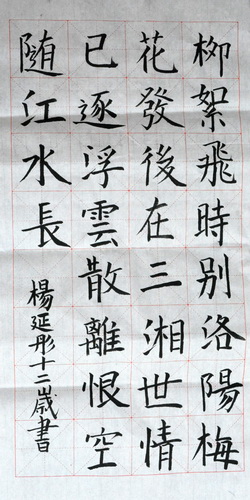 柳絮飛時别洛陽梅
花發後在三湘世情
已逐浮雲散離恨空
随江水長
楊延彤十二歲書